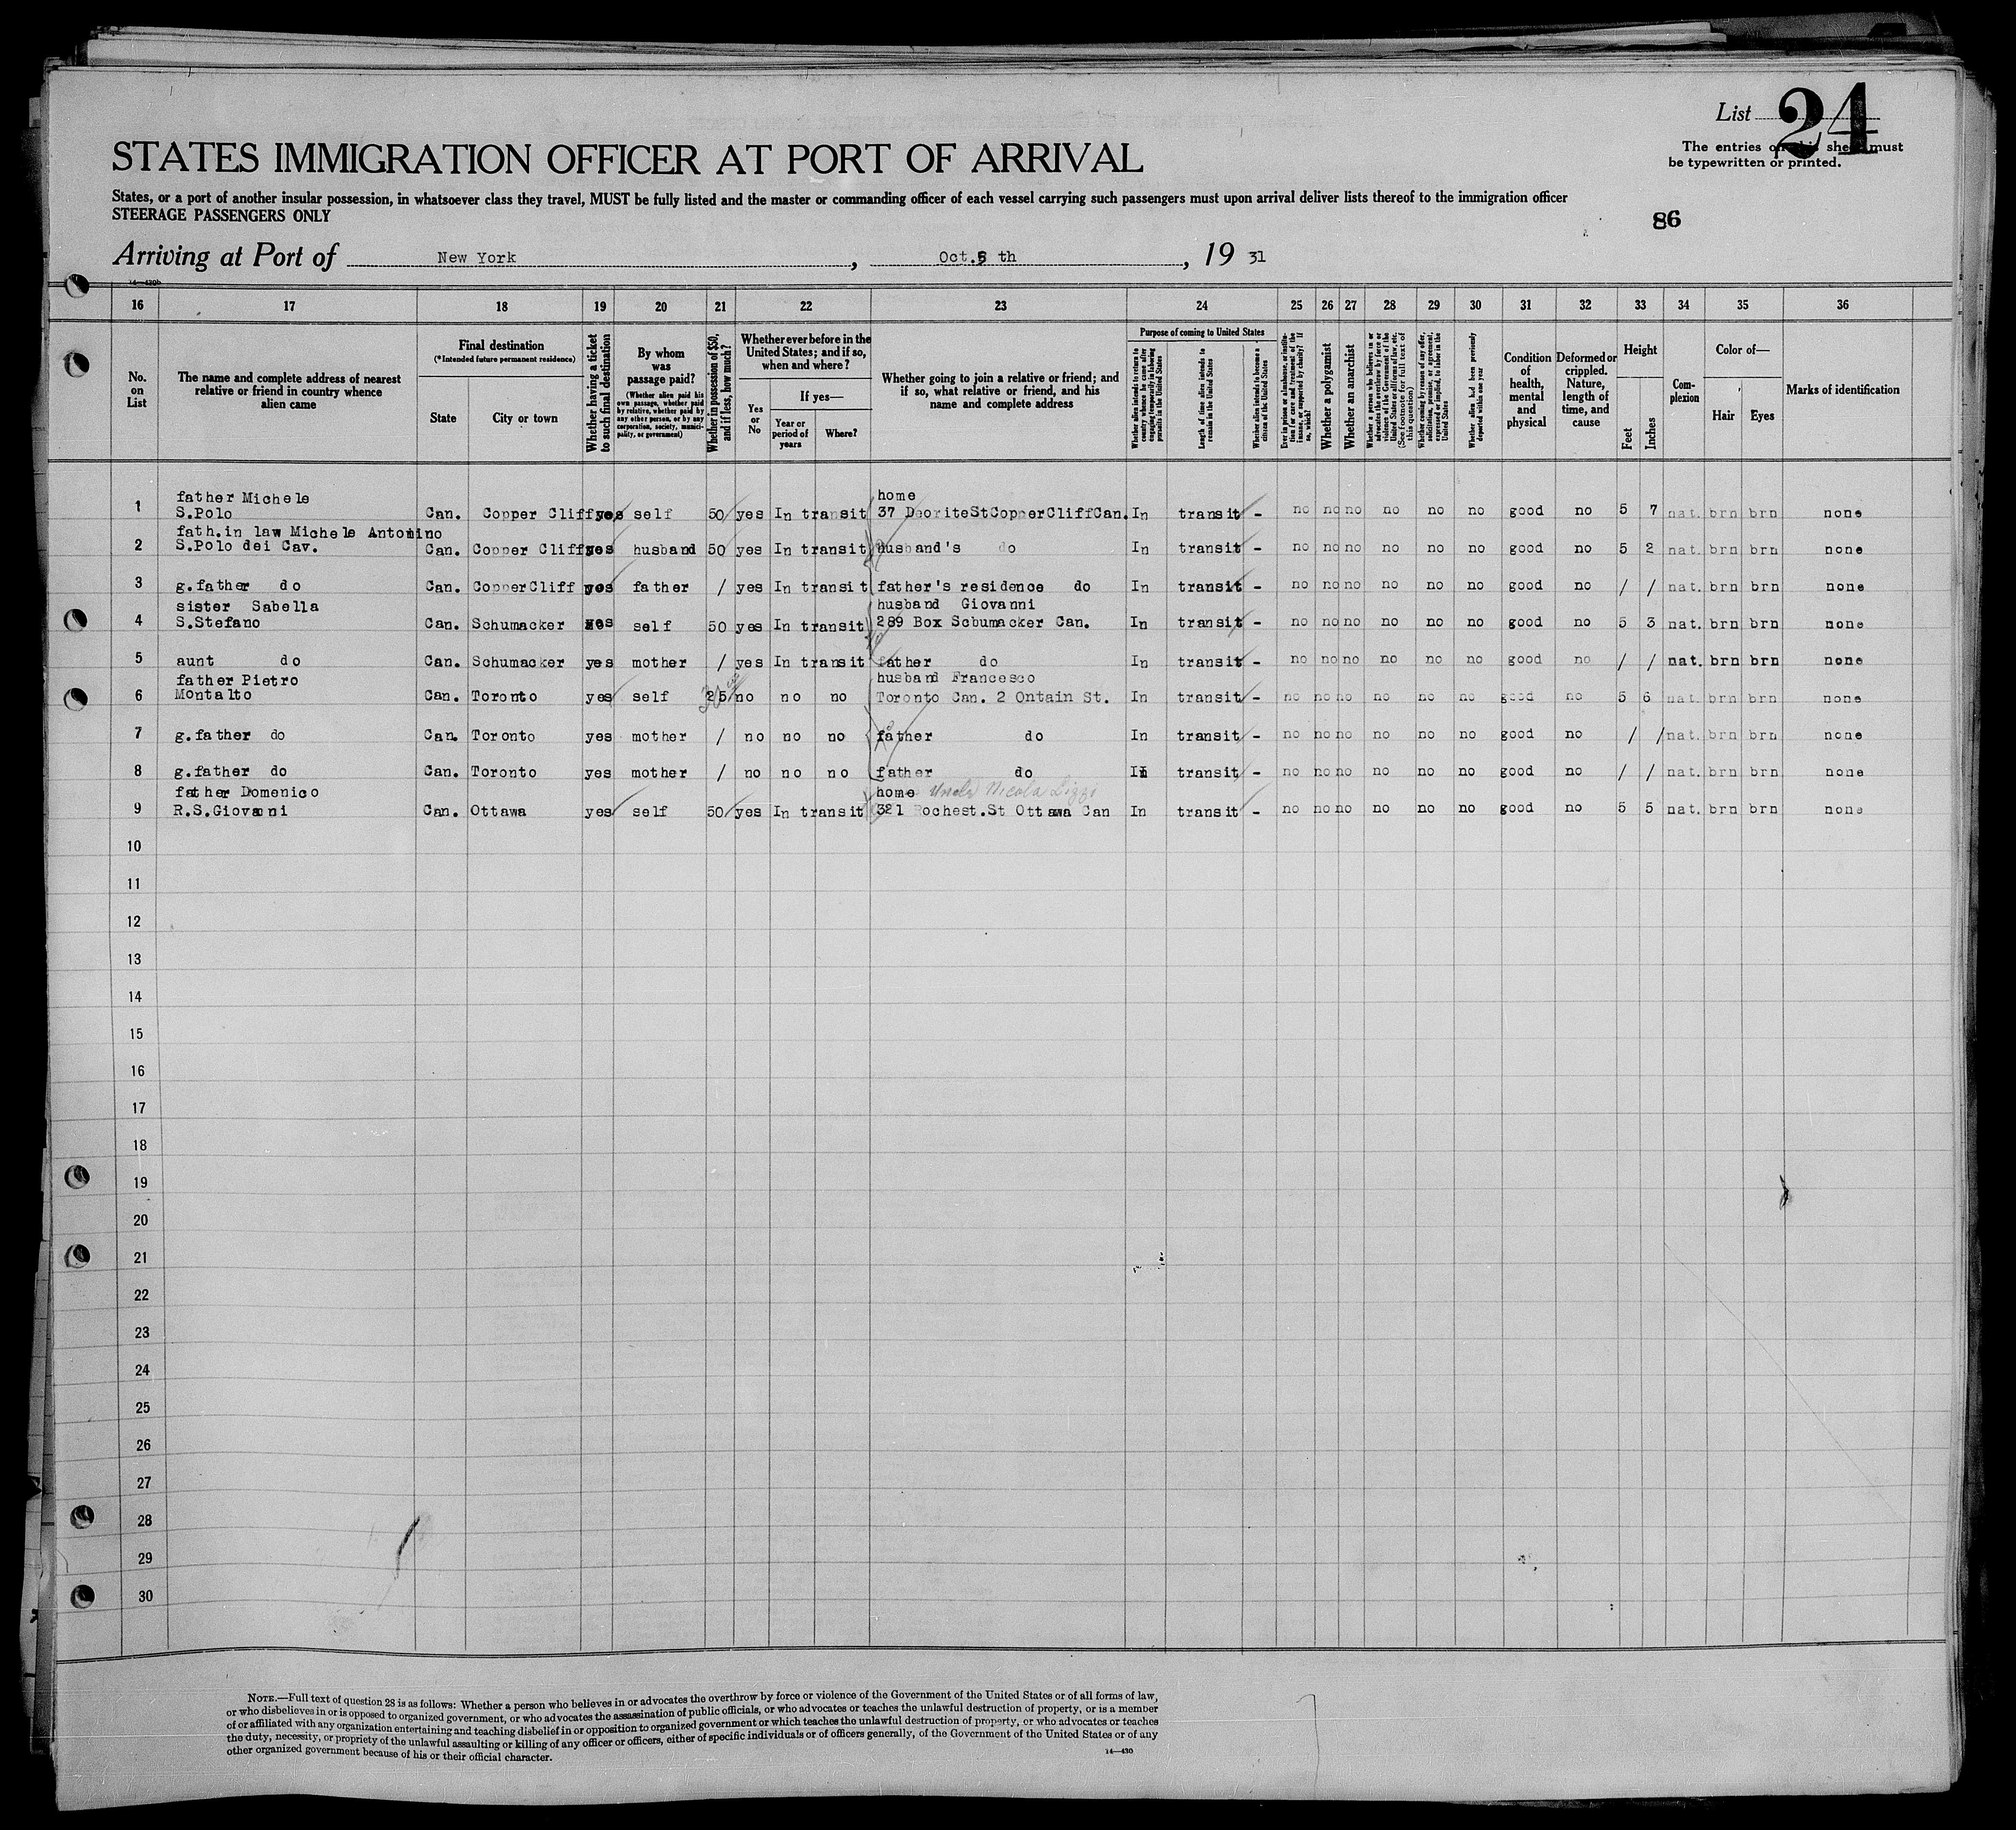 List 24
The entries on this sheet must
be typewritten or printed.
STATES IMMIGRATION OFFICER AT PORT OF ARRIVAL
States, or a port of another insular possession, in whatsoever class they travel, MUST be fully listed and the master or commanding officer of each vessel carrying such passengers must upon arrival deliver lists thereof to the immigration officer
STEERAGE PASSENGERS ONLY
86
Arriving at Port of New York, Oct. 5 th, 19 31
14—430b
16 17 18 19 20 21 22 23 24 25 26 27 28 29 30 31 32 33 34 35 36
No. on List
The name and complete address of nearest relative or friend in country whence alien came
Final destination
(*Intended future permanent residence)
State
City or town
Whether having a ticket to such final destination
By whom was passage paid?
(Whether alien paid his own passage, whether paid by relative, whether paid by any other person, or by any corporation, society, municipality, or government)
Whether in possession of $50, and if less, how much?
Whether ever before in the United States; and if so, when and where?
Yes or No
If yes—
Year or period of years
Where?
Whether going to join a relative or friend; and if so, what relative or friend, and his name and complete address
Purpose of coming to United States
Whether alien intends to return to country whence he came after engaging temporarily in laboring pursuits in the United States
Length of time alien intends to remain in the United States
Whether alien intends to become a citizen of the United States
Ever in prison or almshouse, or institution for care and treatment of the insane, or supported by charity? If so, which?
Whether a polygamist
Whether an anarchist
Whether a person who believes in or advocates the overthrow by force or violence of the Government of the United States or all forms of law, etc. (See footnote for full text of this question)
Whether coming by reason of any offer, solicitation, promise, or agreement, expressed or implied, to labor in the United States
Whether alien had been previously deported within one year
Condition of health, mental and physical
Deformed or crippled. Nature, length of time, and cause
Height
Feet
Inches
Complexion
Color of—
Hair
Eyes
Marks of identification
father Michele home
1 S.Polo Can. Copper Cliff yes self 50 yes In transit 37 DeoriteStCopperCliffCan. In transit - no no no no no no good no 5 7 nat. brn brn none
fath.in law Michele Antonino
2 S.Polo dei Cav. Can. Copper Cliff yes husband 50 yes In transit husband's do In transit - no no no no no no good no 5 2 nat. brn brn none
3 g.father do Can. CopperCliff yes father / yes In transit father's residence do In transit - no no no no no no good no / / nat. brn brn none
sister Sabella husband Giovanni
4 S.Stefano Can. Schumacker yes self 50 yes In transit 289 Box Scbumacker Can. In transit - no no no no no no good no 5 3 nat. brn brn none
5 aunt do Can. Schumacker yes mother / yes In transit father do In transit - no no no no no no good no / / nat. brn brn none
father Pietro husband Francesco
6 Montalto Can. Toronto yes self 25 no no no Toronto Can. 2 Ontain St. In transit - no no no no no no good no 5 6 nat. brn brn none
7 g.father do Can. Toronto yes mother / no no no father do In transit - no no no no no no good no / / nat. brn brn none
8 g.father do Can. Toronto yes mother / no no no father do In transit - no no no no no no good no / / nat. brn brn none
father Domenico home Uncle Nicola
9 R.S.Giovanni Can. Ottawa yes self 50 yes In transit 321 Rochest.St Ottawa Can In transit - no no no no no no good no 5 5 nat. brn brn none
10
11
12
13
14
15
16
17
18
19
20
21
22
23
24
25
26
27
28
29
30
NOTE.—Full text of question 28 is as follows: Whether a person who believes in or advocates the overthrow by force or violence of the Government of the United States or of all forms of law,
or who disbelieves in or is opposed to organized government, or who advocates the assassination of public officials, or who advocates or teaches the unlawful destruction of property, or is a member
of or affiliated with any organization entertaining and teaching disbelief in or opposition to organized government or which teaches the unlawful destruction of property, or who advocates or teaches
the duty, necessity, or propriety of the unlawful assaulting or killing of any officer or officers, either of specific individuals or of officers generally, of the Government of the United States or of any
other organized government because of his or their official character.
14—430